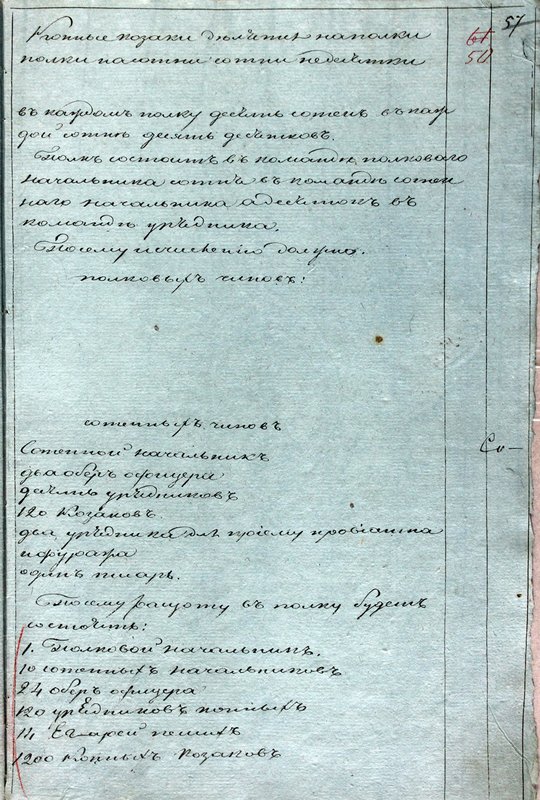 57
61
50
Конные козаки делятся на полки
полки на сотни сотни на десятки
въ каждомъ полку десять сотенъ въ каж
дой сотне десять десятковъ.
Полкъ состоитъ въ команде полковаго
начальника сотня въ команде сотен
наго начальника а десятокъ въ
команде урядника.
Посему исчислению должно.
полковыхъ чиновъ:
сотенныхъ чиновъ
Сотенной начальникъ
два оберъ офицера
десять урядниковъ
120 Козаковъ
два урядника для приему провианта
и фуража
одинъ писарь.
Посему ращоту въ полку будетъ
состоять:
1. Полковой начальникъ.
10 сотенныхъ начальниковъ
24 оберъ офицера
120 урядниковъ конныхъ
14 пешихъ
1200 Конныхъ Козаковъ